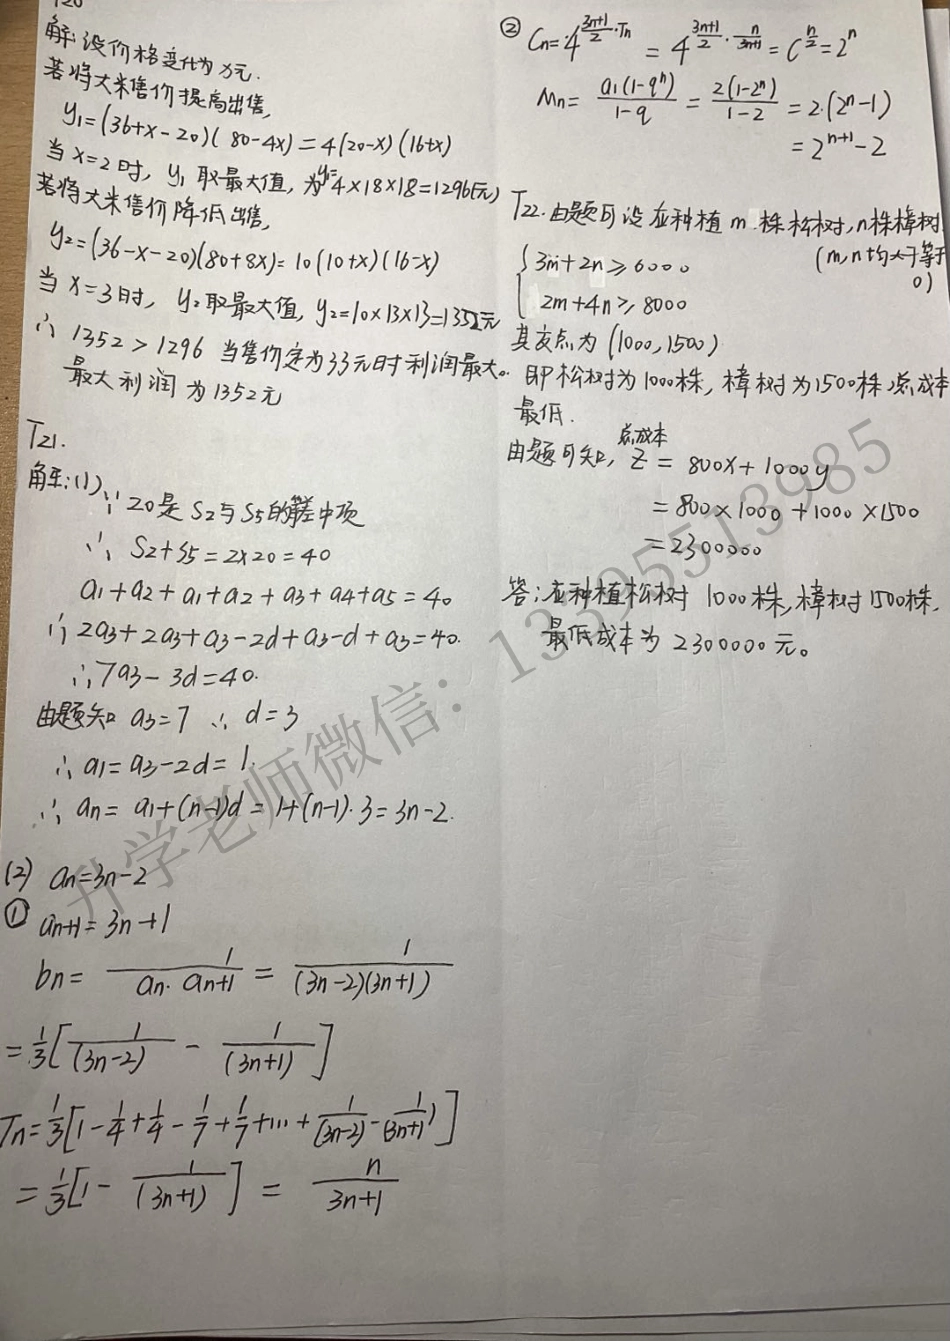 T20
解:设价格变化为x元.
若将大米售价提高出售,
y₁=(36+x-20)(80-4x)=4(20-x)(16+x)
当x=2时, y₁取最大值, 为y₁=4×18×18=1296(元)
若将大米售价降低出售,
y₂=(36-x-20)(80+8x)=10(10+x)(16-x)
当x=3时, y₂取最大值, y₂=10×13×13=1352元
∴ 1352>1296 当售价定为33元时利润最大。
最大利润为1352元
T21.
解:(1)∵20是S₂与S₅的等差中项
∴ S₂+S₅=2×20=40
a₁+a₂+a₁+a₂+a₃+a₄+a₅=40
∴ 2a₃+2a₃+a₃-2d+a₃-d+a₃=40.
∴7a₃-3d=40.
由题知 a₃=7 ∴ d=3
∴ a₁=a₃-2d=1.
∴ an=a₁+(n-1)d=1+(n-1)·3=3n-2.
(2) an=3n-2
① an+1=3n+1
bn= 1/(an·an+1) = 1/((3n-2)(3n+1))
=1/3[1/(3n-2) - 1/(3n+1)]
Tn=1/3[1-1/4+1/4-1/7+1/7+…+1/(3n-2)-1/(3n+1)]
=1/3[1-1/(3n+1)] = n/(3n+1)
② Cn=4^((3n+1)/2·Tn) = 4^((3n+1)/2·n/(3n+1)) = C^(n/2)=2ⁿ
Mn= a₁(1-qⁿ)/(1-q) = 2(1-2ⁿ)/(1-2) =2·(2ⁿ-1)
=2ⁿ⁺¹-2
T22.由题可设应种植m株松树,n株樟树
(m,n均大于等于0)
{3m+2n≥6000
2m+4n≥8000
其交点为(1000,1500)
即松树为1000株,樟树为1500株总成本
最低.
由题可知,总成本 Z=800x+1000y
=800×1000+1000×1500
=2300000
答:应种植松树1000株,樟树1500株,
最低成本为2300000元。
升学老师微信:13395513985